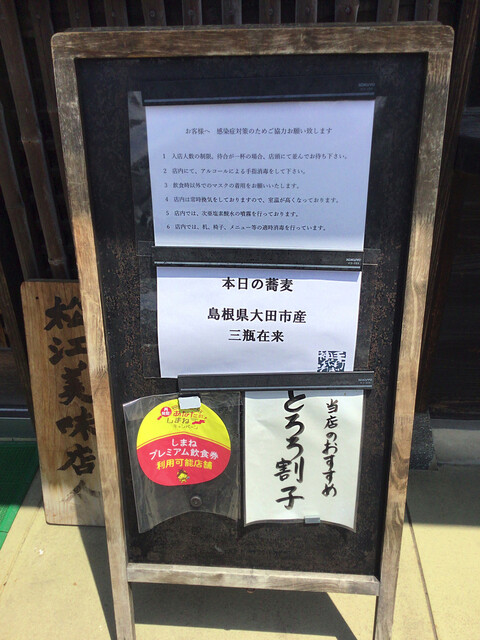 お客様へ 感染症対策のためご協力お願い致します
1 入店人数の制限。待合が一杯の場合、店頭にて並んでお待ち下さい。
2 店内にて、アルコールによる手指消毒をして下さい。
3 飲食時以外でのマスクの着用をお願いいたします。
4 店内は常時換気をしておりますので、室温が高くなっております。
5 店内では、次亜塩素酸水の噴霧を行っております。
6 店内では、机、椅子、メニュー等の適時消毒を行っています。
本日の蕎麦
島根県大田市産
三瓶在来
しまね
キャンペーン
しまね
プレミアム飲食券
利用可能店舗
当店のおすすめ
とろろ割子
松江美味店